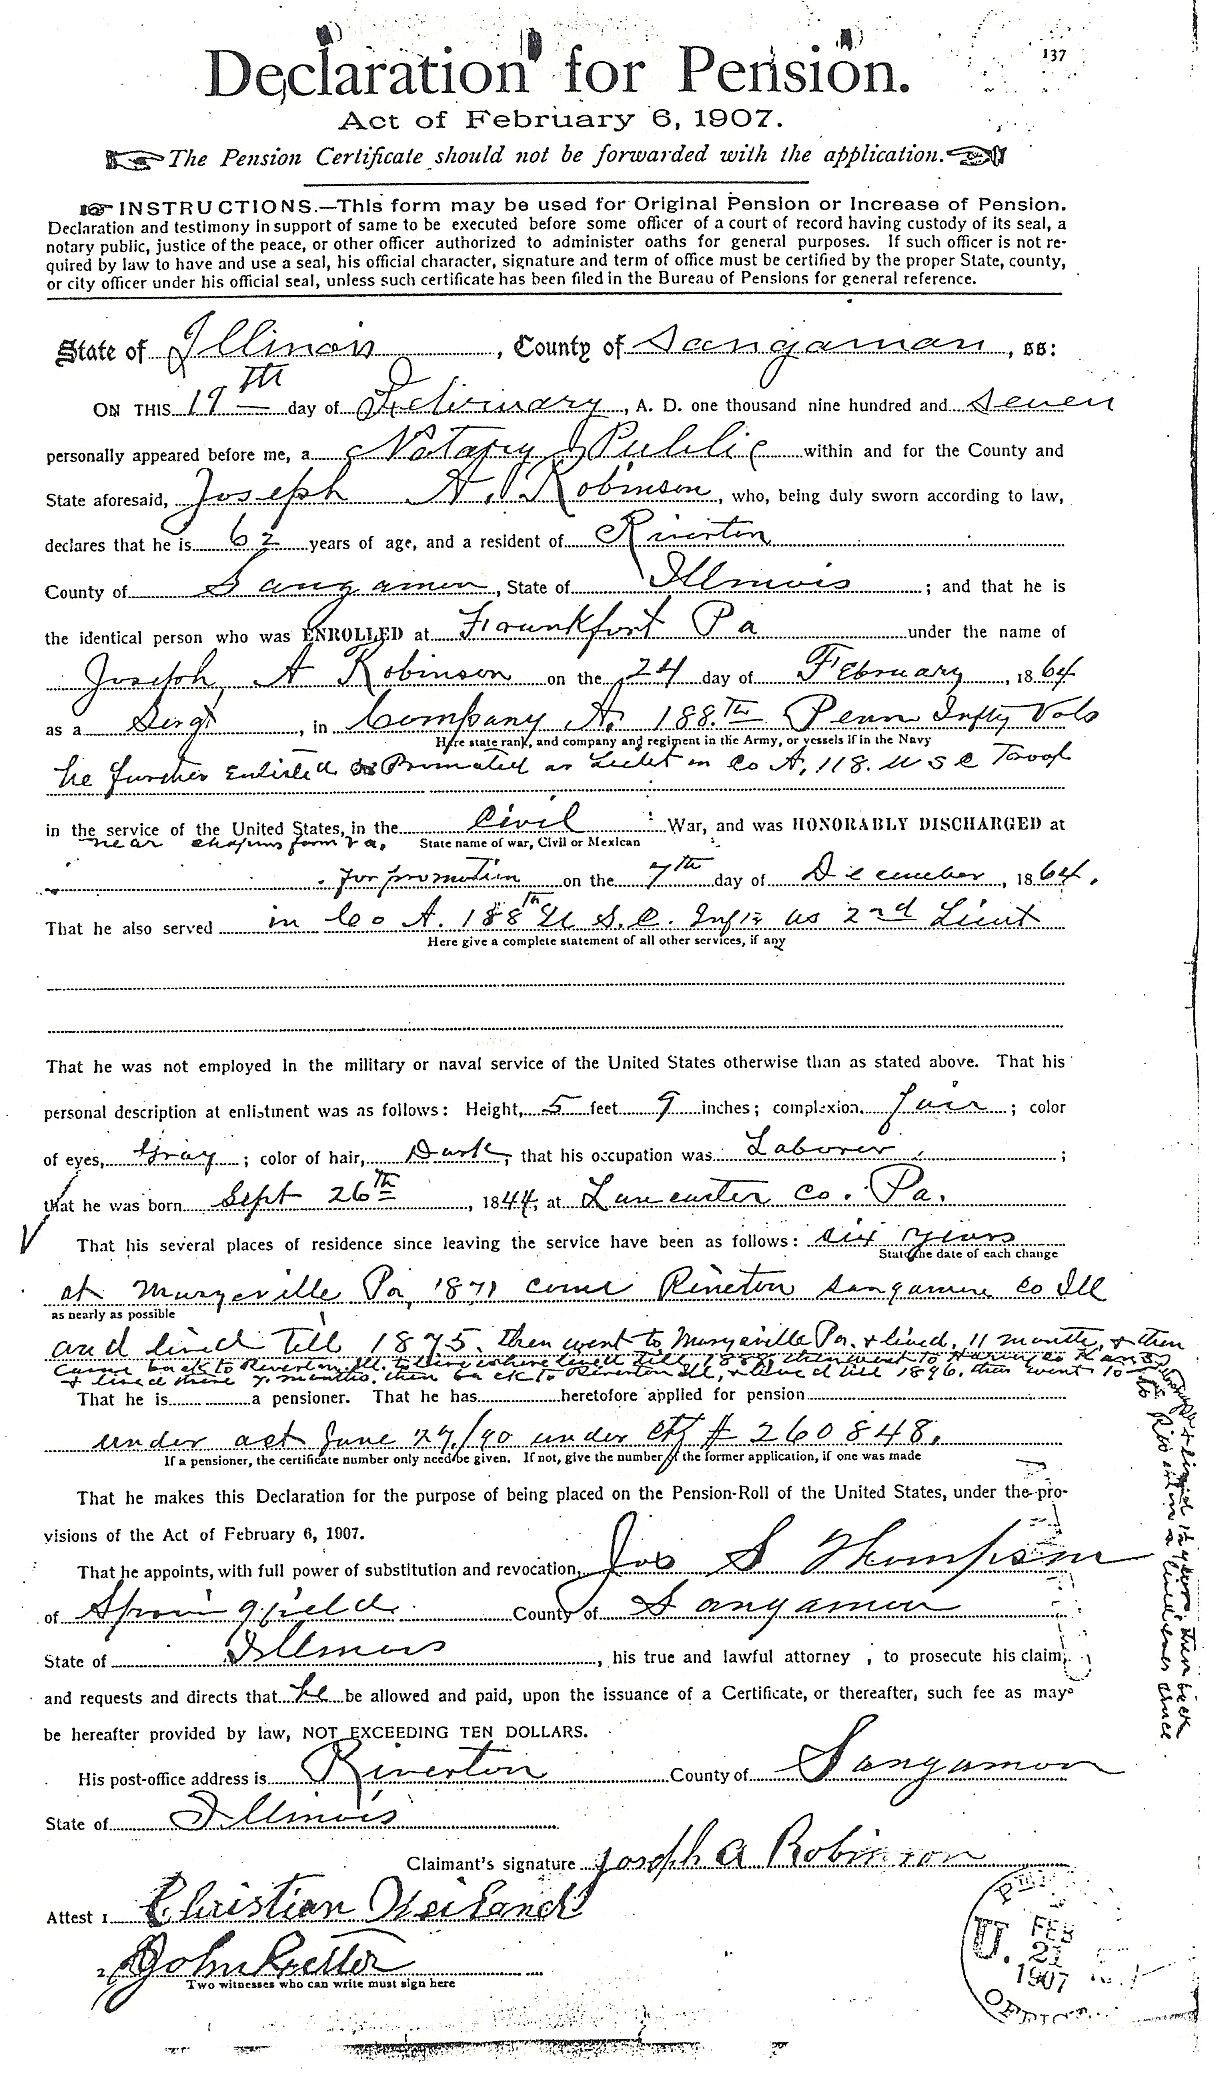 137
Declaration for Pension.
Act of February 6, 1907.
The Pension Certificate should not be forwarded with the application.
INSTRUCTIONS.—This form may be used for Original Pension or Increase of Pension.
Declaration and testimony in support of same to be executed before some officer of a court of record having custody of its seal, a
notary public, justice of the peace, or other officer authorized to administer oaths for general purposes. If such officer is not re-
quired by law to have and use a seal, his official character, signature and term of office must be certified by the proper State, county,
or city officer under his official seal, unless such certificate has been filed in the Bureau of Pensions for general reference.
State of Illinois, County of Sangamon, ss:
ON THIS 19th day of February, A. D. one thousand nine hundred and seven
personally appeared before me, a Notary Public within and for the County and
State aforesaid, Joseph A. Robinson, who, being duly sworn according to law,
declares that he is 62 years of age, and a resident of Riverton
County of Sangamon, State of Illinois; and that he is
the identical person who was ENROLLED at Frankfort Pa under the name of
Joseph A Robinson on the 24 day of February, 1864
as a Sergt, in Company A, 188.Th Penn Infty Vols
Here state rank, and company and regiment in the Army, or vessels if in the Navy
he further Enlisted Promoted as Lieut in Co A, 118. U S C Troop
in the service of the United States, in the Civil War, and was HONORABLY DISCHARGED at
near farm Va. State name of war, Civil or Mexican
for promotion on the 7th day of December, 1864.
That he also served in Co A. 188th U. S. C. Inft as 2nd Lieut
Here give a complete statement of all other services, if any
That he was not employed in the military or naval service of the United States otherwise than as stated above. That his
personal description at enlistment was as follows: Height, 5 feet 9 inches; complexion, fair; color
of eyes, Gray; color of hair, Dark; that his occupation was Laborer;
that he was born Sept 26Th, 1844, at Lancaster Co. Pa.
That his several places of residence since leaving the service have been as follows: six years
State the date of each change
at Marysville Pa, 1871 come Riverton Sangamon Co Ill
as nearly as possible
and lived till 1875. then went to Marysville Pa. & lived. 11 months, & then
came back to Riverton. Ill. to live where lived till 188 then went to Co Kans
& lived there 7 months. then back to Riverton Ill, & lived till 1896. then went to
& lived 1½ years, then back
to Riverton & lived ever since
That he is a pensioner. That he has heretofore applied for pension
under act June 27/90 under ctf # 260848.
If a pensioner, the certificate number only need be given. If not, give the number of the former application, if one was made
That he makes this Declaration for the purpose of being placed on the Pension-Roll of the United States, under the pro-
visions of the Act of February 6, 1907.
That he appoints, with full power of substitution and revocation, Jos S Thompson
of Springfield County of Sangamon
State of Illinois, his true and lawful attorney, to prosecute his claim,
and requests and directs that he be allowed and paid, upon the issuance of a Certificate, or thereafter, such fee as may
be hereafter provided by law, NOT EXCEEDING TEN DOLLARS.
His post-office address is Riverton County of Sangamon
State of Illinois
Claimant's signature Joseph A Robinson
Attest 1 Christian
2 John
Two witnesses who can write must sign here
U.
FEB
21
1907
OFFICE